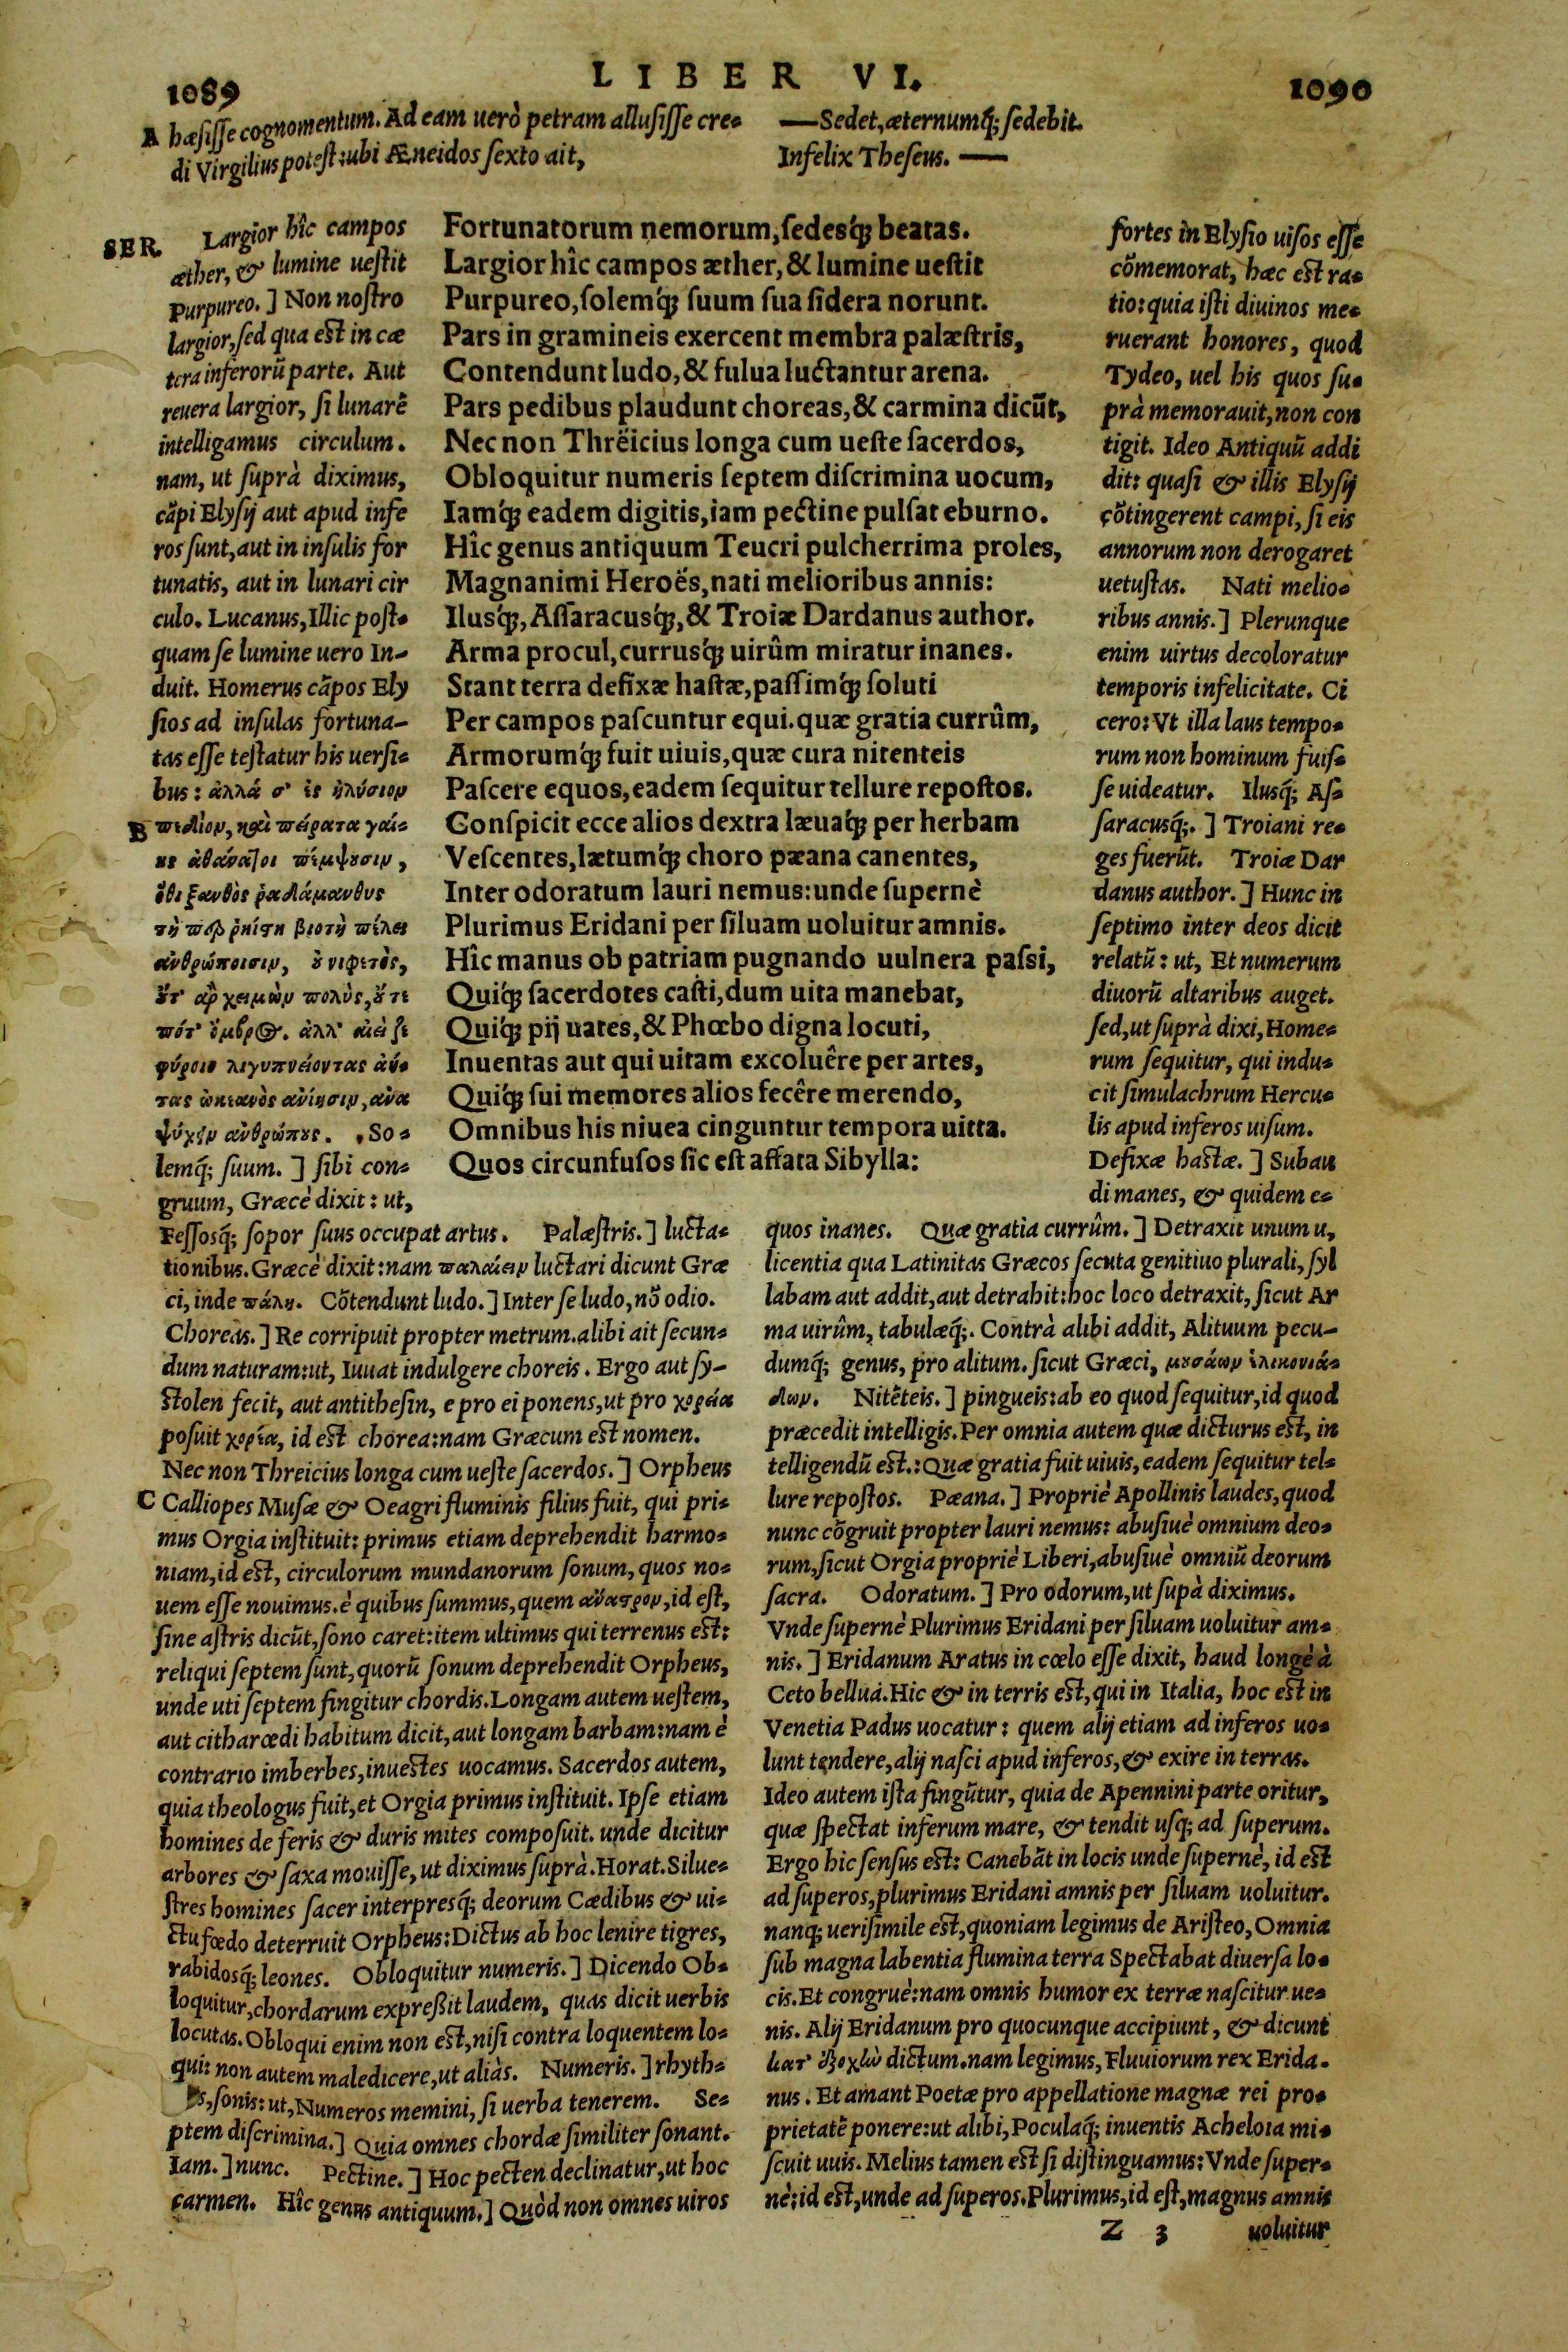 1089
LIBER VI.
1090
A hæsisse cognomentum. Ad eam uerò petram allusisse cre-
di Virgilius potest: ubi Æneidos sexto ait,
—Sedet, æternumq́; sedebit.
Infelix Theseus. —
SER.
Largior hîc campos
æther, & lumine uestit
Purpureo.] Non nostro
largior, sed qua est in cæ
tera inferorũ parte. Aut
reuera largior, si lunarẽ
intelligamus circulum.
nam, ut suprà diximus,
cãpi Elysij aut apud infe
ros sunt, aut in insulis for
tunatis, aut in lunari cir
culo. Lucanus, Illic post-
quam se lumine uero In-
duit. Homerus cãpos Ely
sios ad insulas fortuna-
tas esse testatur his uersi-
bus: ἀλλά σ' ἐς ἠλύσιον
B πεδίον, καὶ πείρατα γαί-
ης ἀθάνατοι πέμψουσιν,
ὅθι ξανθὸς ῥαδάμανθυς
τῇ περ ῥηίστη βιοτὴ πέλει
ἀνθρώποισιν, οὐ νιφετὸς,
οὔτ' ἂρ χειμὼν πολὺς, οὔτε
πότ' ὄμβρος. ἀλλ' αἰεὶ ζε
φύροιο λιγυπνείοντας ἀή-
τας ὠκεανὸς ἀνίησιν, ἀνα
ψύχειν ἀνθρώπους. So-
lemq́; suum.] sibi con-
gruum, Græcè dixit: ut,
Fortunatorum nemorum, sedesq́; beatas.
Largior hîc campos æther, & lumine uestit
Purpureo, solemq́; suum sua sidera norunt.
Pars in gramineis exercent membra palæstris,
Contendunt ludo, & fulua luctantur arena.
Pars pedibus plaudunt choreas, & carmina dicũt,
Nec non Thrëicius longa cum ueste sacerdos,
Obloquitur numeris septem discrimina uocum,
Iamq́; eadem digitis, iam pectine pulsat eburno.
Hîc genus antiquum Teucri pulcherrima proles,
Magnanimi Heroës, nati melioribus annis:
Ilusq́;, Assaracusq́;, & Troiæ Dardanus author.
Arma procul, currusq́; uirûm miratur inanes.
Stant terra defixæ hastæ, passimq́; soluti
Per campos pascuntur equi. quæ gratia currûm,
Armorumq́; fuit uiuis, quæ cura nitenteis
Pascere equos, eadem sequitur tellure repostos.
Conspicit ecce alios dextra læuaq́; per herbam
Vescentes, lætumq́; choro pæana canentes,
Inter odoratum lauri nemus: unde supernè
Plurimus Eridani per siluam uoluitur amnis.
Hîc manus ob patriam pugnando uulnera passi,
Quiq́; sacerdotes casti, dum uita manebat,
Quiq́; pij uates, & Phœbo digna locuti,
Inuentas aut qui uitam excoluêre per artes,
Quiq́; sui memores alios fecêre merendo,
Omnibus his niuea cinguntur tempora uitta.
Quos circunfusos sic est affata Sibylla:
fortes in Elysio uisos esse
cõmemorat, hæc est ra-
tio: quia isti diuinos me-
ruerant honores, quod
Tydeo, uel his quos su-
prà memorauit, non con
tigit. Ideo Antiquũ addi
dit: quasi & illis Elysij
cõtingerent campi, si eis
annorum non derogaret
uetustas. Nati melio-
ribus annis.] Plerunque
enim uirtus decoloratur
temporis infelicitate. Ci
cero: Vt illa laus tempo-
rum non hominum fuis-
se uideatur. Ilusq́; As-
saracusq́;.] Troiani re-
ges fuerũt. Troiæ Dar
danus author.] Hunc in
septimo inter deos dicit
relatũ: ut, Et numerum
diuorũ altaribus auget.
sed, ut suprà dixi, Home-
rum sequitur, qui indu-
cit simulachrum Hercu-
lis apud inferos uisum.
Defixæ hastæ.] Subau
di manes, & quidem e-
Fessosq́; sopor suus occupat artus. Palæstris.] lucta-
tionibus. Græcè dixit: nam παλαίειν luctari dicunt Græ
ci, inde πάλη. Cõtendunt ludo.] Inter se ludo, nõ odio.
Choreas.] Re corripuit propter metrum. alibi ait secun-
dum naturam: ut, Iuuat indulgere choreis. Ergo aut sy-
stolen fecit, aut antithesin, e pro ei ponens, ut pro χορεία
posuit χορέα, id est chorea: nam Græcum est nomen.
Nec non Threicius longa cum ueste sacerdos.] Orpheus
C Calliopes Musæ & Oeagri fluminis filius fuit, qui pri-
mus Orgia instituit: primus etiam deprehendit harmo-
niam, id est, circulorum mundanorum sonum, quos no-
uem esse nouimus. è quibus summus, quem ἄναστρον, id est,
sine astris dicũt, sono caret: item ultimus qui terrenus est:
reliqui septem sunt, quorũ sonum deprehendit Orpheus,
unde uti septem fingitur chordis. Longam autem uestem,
aut citharœdi habitum dicit, aut longam barbam: nam è
contrario imberbes, inuestes uocamus. Sacerdos autem,
quia theologus fuit, et Orgia primus instituit. Ipse etiam
homines de feris & duris mites composuit. unde dicitur
arbores & saxa mouisse, ut diximus suprà. Horat. Silue-
stres homines sacer interpresq́; deorum Cædibus & ui-
ctu fœdo deterruit Orpheus: Dictus ab hoc lenire tigres,
rabidosq́; leones. Obloquitur numeris.] Dicendo Ob-
loquitur, chordarum expreßit laudem, quas dicit uerbis
locutas. Obloqui enim non est, nisi contra loquentem lo-
qui: non autem maledicere, ut aliàs. Numeris.] rhyth-
s, sonis: ut, Numeros memini, si uerba tenerem. Se-
ptem discrimina.] Quia omnes chordæ similiter sonant.
Iam.] nunc. Pectine.] Hoc pecten declinatur, ut hoc
carmen. Hîc genus antiquum.] Quòd non omnes uiros
quos inanes. Quæ gratia currûm.] Detraxit unum u,
licentia qua Latinitas Græcos secuta genitiuo plurali, syl
labam aut addit, aut detrahit: hoc loco detraxit, sicut Ar
ma uirûm, tabulæq́;. Contrà alibi addit, Alituum pecu-
dumq́; genus, pro alitum. sicut Græci, μουσάων ἑλικονιά-
δων. Nitẽteis.] pingueis: ab eo quod sequitur, id quod
præcedit intelligis. Per omnia autem quæ dicturus est, in
telligendũ est.: Quæ gratia fuit uiuis, eadem sequitur tel-
lure repostos. Pæana.] Propriè Apollinis laudes, quod
nunc cõgruit propter lauri nemus: abusiuè omnium deo-
rum, sicut Orgia propriè Liberi, abusiuè omniũ deorum
sacra. Odoratum.] Pro odorum, ut supà diximus.
Vnde supernè Plurimus Eridani per siluam uoluitur am-
nis.] Eridanum Aratus in cœlo esse dixit, haud longè à
Ceto bellua. Hic & in terris est, qui in Italia, hoc est in
Venetia Padus uocatur: quem alij etiam ad inferos uo-
lunt tendere, alij nasci apud inferos, & exire in terras.
Ideo autem ista fingũtur, quia de Apennini parte oritur,
quæ spectat inferum mare, & tendit usq; ad superum.
Ergo hic sensus est: Canebãt in locis unde supernè, id est
ad superos, plurimus Eridani amnis per siluam uoluitur.
nanq; uerisimile est, quoniam legimus de Aristeo, Omnia
sub magna labentia flumina terra Spectabat diuersa lo-
cis. Et congruè: nam omnis humor ex terræ nascitur ue-
nis. Alij Eridanum pro quocunque accipiunt, & dicunt
κατ' ἐξοχὴν dictum. nam legimus, Fluuiorum rex Erida-
nus. Et amant Poetæ pro appellatione magnæ rei pro-
prietatẽ ponere: ut alibi, Poculaq́; inuentis Acheloia mi-
scuit uuis. Melius tamen est si distinguamus: Vnde super-
nè: id est, unde ad superos. Plurimus, id est, magnus amnis
Z 3 uoluitur